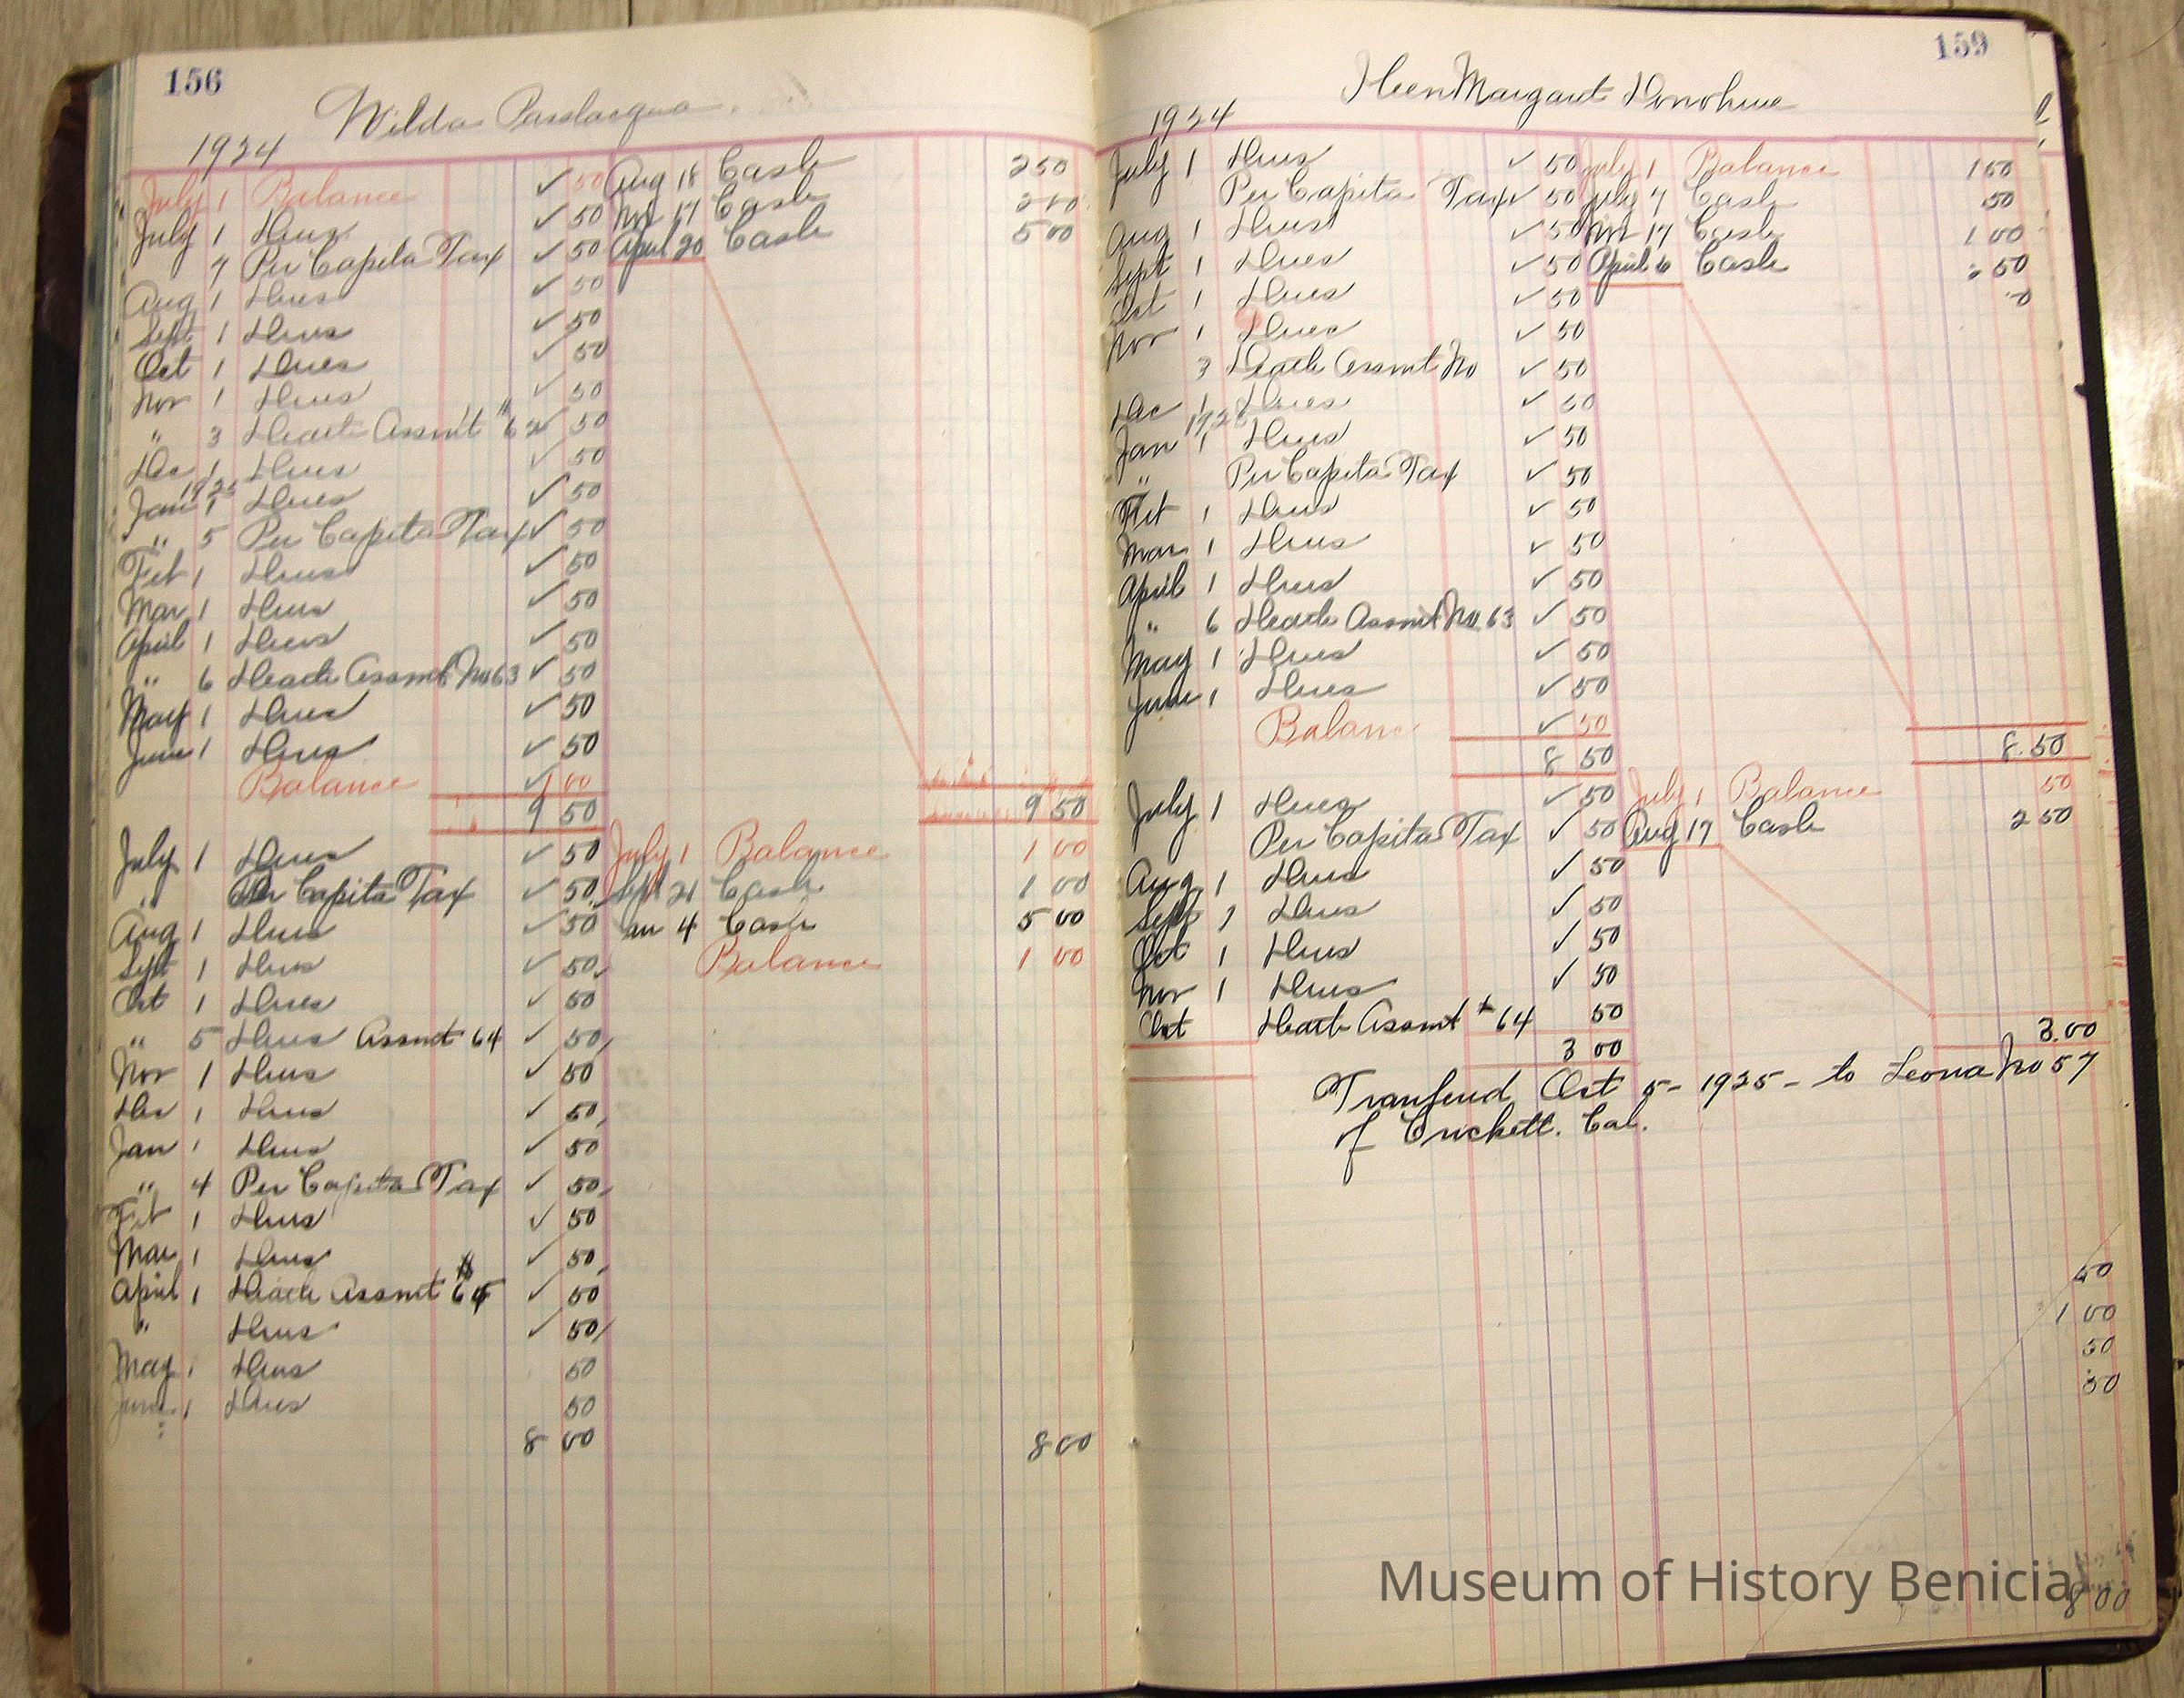 156
Wilda Passlacqua
1924
July 1 Balance ✓ 50 Aug 18 Cash 2 50
July 1 Dues ✓ 50 17 Cash 2 00
7 Per Capita Tax ✓ 50 April 20 Cash 5 00
Aug 1 Dues ✓ 50
Sept 1 Dues ✓ 50
Oct 1 Dues ✓ 50
Nov 1 Dues ✓ 50
" 3 Death Assmt # 62 ✓ 50
Dec 1 Dues ✓ 50
1925
Jan 1 Dues ✓ 50
" 5 Per Capita Tax ✓ 50
Feb 1 Dues ✓ 50
Mar 1 Dues ✓ 50
April 1 Dues ✓ 50
" 6 Death Assmt No 63 ✓ 50
May 1 Dues ✓ 50
June 1 Dues ✓ 50
Balance ✓ 1 00
9 50 9 50
July 1 Dues ✓ 50 July 1 Balance 1 00
" Per Capita Tax ✓ 50 Sept 21 Cash 1 00
Aug 1 Dues ✓ 50 Jan 4 Cash 5 00
Sept 1 Dues ✓ 50 Balance 1 00
Oct 1 Dues ✓ 50
" 5 Dues Assmt 64 ✓ 50
Nov 1 Dues ✓ 50
Dec 1 Dues ✓ 50
Jan 1 Dues ✓ 50
" 4 Per Capita Tax ✓ 50
Feb 1 Dues ✓ 50
Mar 1 Dues ✓ 50
April 1 Death Assmt # 65 ✓ 50
" Dues ✓ 50
May 1 Dues 50
June 1 Dues 50
8 00 8 00
159
Margaret Donohue
1924
July 1 Dues ✓ 50 July 1 Balance 1 50
Per Capita Tax ✓ 50 July 7 Cash 50
Aug 1 Dues ✓ 50 17 Cash 1 00
Sept 1 Dues ✓ 50 April 6 Cash 50
Oct 1 Dues ✓ 50
Nov 1 Dues ✓ 50
3 Death Assmt No ✓ 50
Dec 1 Dues ✓ 50
1925
Jan 1 Dues ✓ 50
" Per Capita Tax ✓ 50
Feb 1 Dues ✓ 50
Mar 1 Dues ✓ 50
April 1 Dues ✓ 50
" 6 Death Assmt No 63 ✓ 50
May 1 Dues ✓ 50
June 1 Dues ✓ 50
Balance ✓ 50
8 50 8.50
July 1 Dues ✓ 50 July 1 Balance 50
Per Capita Tax ✓ 50 Aug 17 Cash 2 50
Aug 1 Dues ✓ 50
Sept 1 Dues ✓ 50
Oct 1 Dues ✓ 50
Nov 1 Dues ✓ 50
Oct Death Assmt # 64 50
3 00 3.00
Transferred Oct 5 - 1925 - to Leona No 57
of Crickett. Cal.
50
1 00
50
50
8 00
Museum of History Benicia